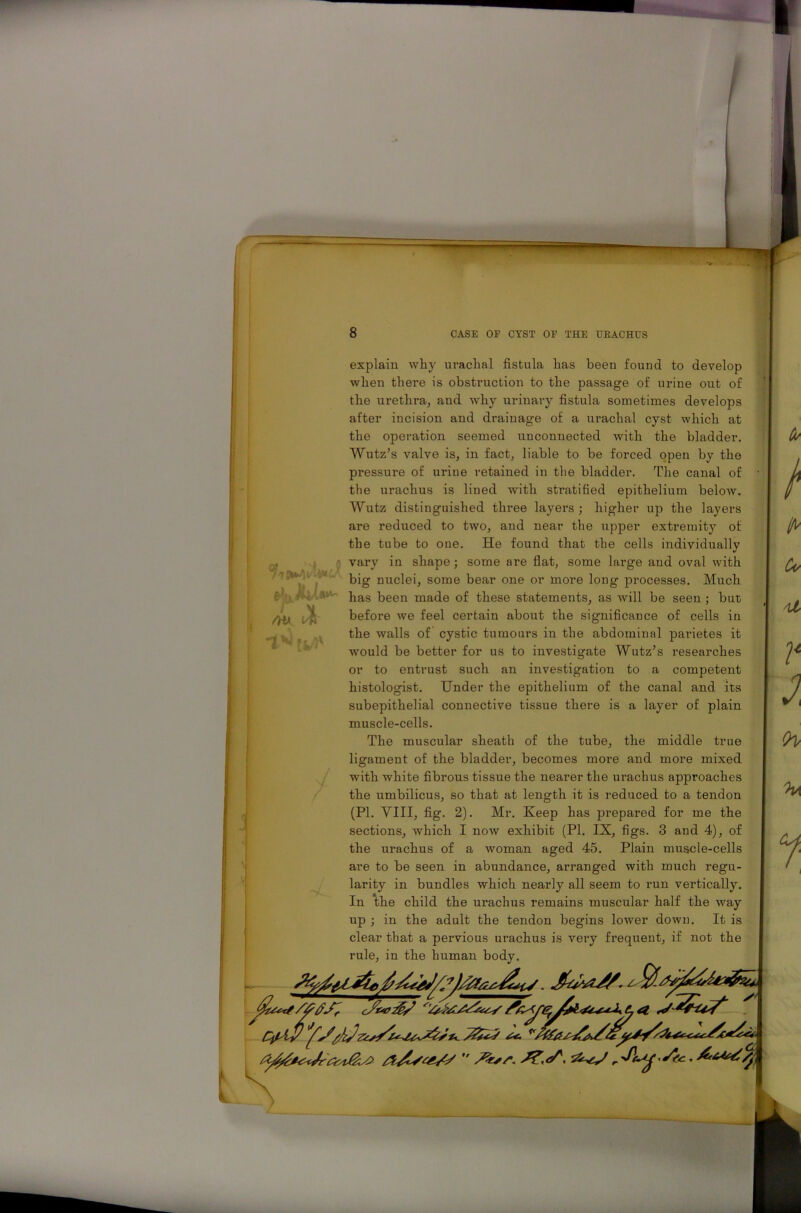 8 CASE OF CYST OF THE URACHUS
explain why urachal fistula has been found to develop
when there is obstruction to the passage of urine out of
the urethra, and why urinary fistula sometimes develops
after incision and drainage of a urachal cyst which at
the operation seemed unconnected with the bladder.
Wutz’s valve is, in fact, liable to be forced open by the
pressure of urine retained in the bladder. The canal of
the urachus is lined with stratified epithelium below.
Wutz distinguished three layers ; higher up the layers
are reduced to two, and near the upper extremity of
the tube to one. He found that the cells individually
vary in shape ; some are flat, some large and oval with
big nuclei, some bear one or more long processes. Much
has been made of these statements, as will be seen ; but
before we feel certain about the significance of cells in
the walls of cystic tumours in the abdominal parietes it
would be better for us to investigate Wutz’s researches
or to entrust such an investigation to a competent
histologist. Under the epithelium of the canal and its
subepithelial connective tissue there is a layer of plain
muscle-cells.
The muscular sheath of the tube, the middle true
ligament of the bladder, becomes more and more mixed
with white fibrous tissue the nearer the urachus approaches
the umbilicus, so that at length it is reduced to a tendon
(Pl. VIII, fig. 2). Mr. Keep has prepared for me the
sections, which I now exhibit (Pl. IX, figs. 3 and 4), of
the urachus of a woman aged 45. Plain muscle-cells
are to be seen in abundance, arranged with much regu-
larity in bundles which nearly all seem to run vertically.
In the child the urachus remains muscular half the way
up ; in the adult the tendon begins lower down. It is
clear that a pervious urachus is very frequent, if not the
rule, in the human body.